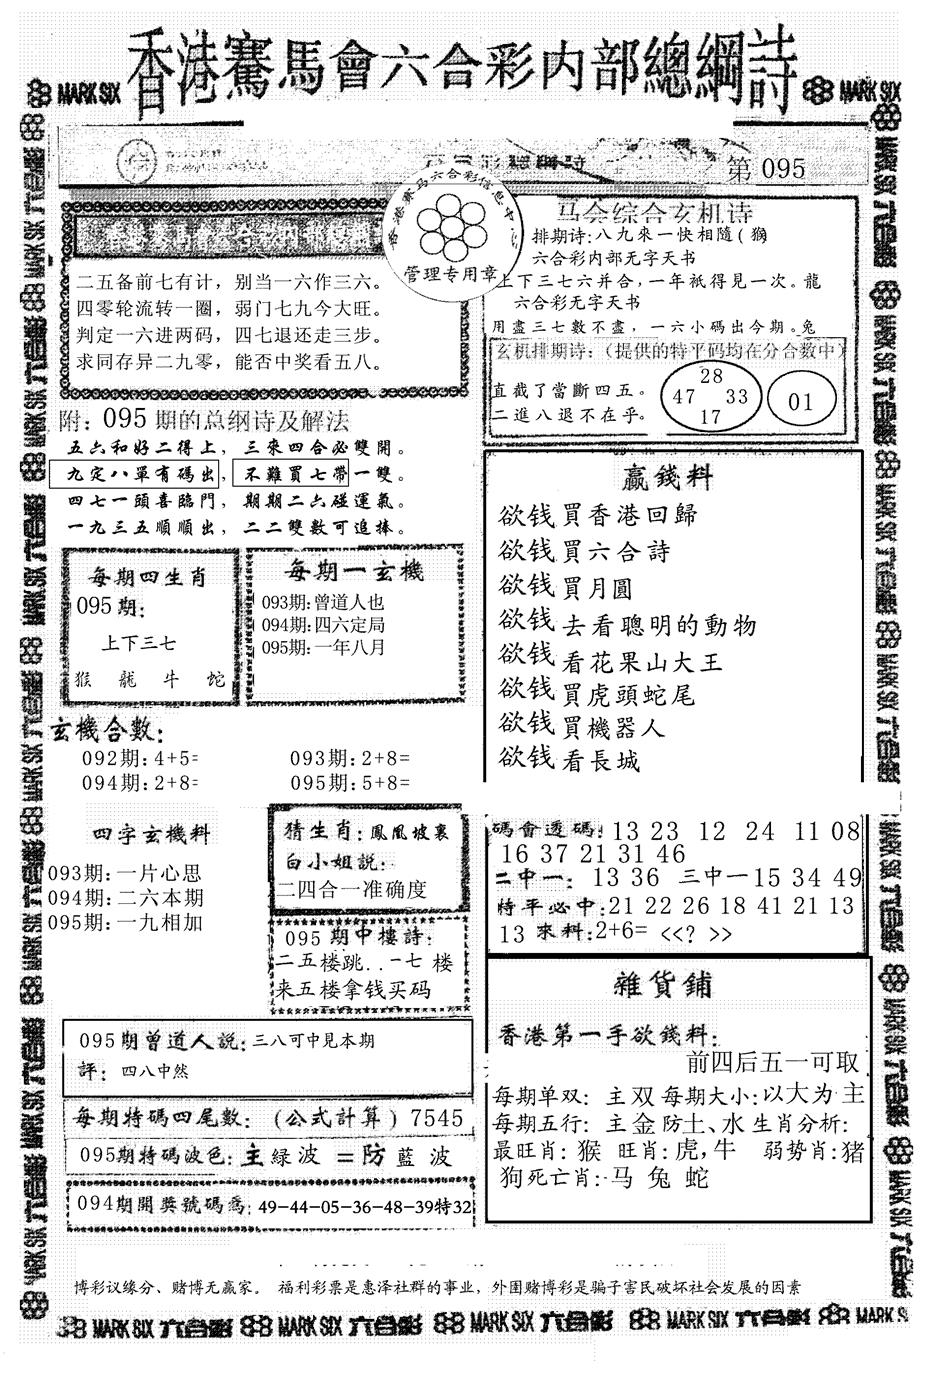 香港賽馬會六合彩内部總綱詩
MARK SIX
MARK SIX
第 095
香港赛马六合彩信息中心
管理专用章
二五备前七有计，别当一六作三六。
四零轮流转一圈，弱门七九今大旺。
判定一六进两码，四七退还走三步。
求同存异二九零，能否中奖看五八。
附：095 期的总纲诗及解法
五六和好二得上，三來四合必雙開。
九定八單有碼出，不難買七帶一雙。
四七一頭喜臨門，期期二六碰運氣。
一九三五順順出，二二雙數可追捧。
马会综合玄机诗
排期诗:八九來一快相隨(猴
六合彩内部无字天书
上下三七六并合，一年祇得見一次。龍
六合彩无字天书
用盡三七數不盡，一六小碼出今期。兔
玄机排期诗：（提供的特平码均在分合數中）
直截了當斷四五。
二進八退不在乎。
28
47 33
17
01
每期四生肖
095期：
上下三七
猴 龍 牛 蛇
每期一玄機
093期:曾道人也
094期:四六定局
095期:一年八月
玄機合數：
092期:4+5=
093期:2+8=
094期:2+8=
095期:5+8=
贏錢料
欲钱買香港回歸
欲钱買六合詩
欲钱買月圓
欲钱去看聰明的動物
欲钱看花果山大王
欲钱買虎頭蛇尾
欲钱買機器人
欲钱看長城
四字玄機料
093期:一片心思
094期:二六本期
095期:一九相加
猜生肖:鳳凰坡裏
白小姐説：
二四合一准确度
095 期中樓詩：
二五楼跳..一七 楼
来五楼拿钱买码
碼會透碼:13 23 12 24 11 08
16 37 21 31 46
二中一: 13 36 三中一15 34 49
特平必中:21 22 26 18 41 21 13
13 來料:2+6= <<? >>
095期曾道人説:三八可中見本期
評: 四八中然
每期特碼四尾數:（公式計算）7545
095期特碼波色:主綠波 =防藍波
094期開獎號碼爲:49-44-05-36-48-39特32
雜貨鋪
香港第一手欲錢料:
前四后五一可取
每期单双: 主双 每期大小:以大为主
每期五行: 主金防土、水 生肖分析:
最旺肖: 猴 旺肖:虎,牛 弱势肖:猪
狗死亡肖:马 兔 蛇
博彩议缘分、赌博无赢家。 福利彩票是惠泽社群的事业，外围赌博彩是骗子害民破坏社会发展的因素
MARK SIX 六合彩 MARK SIX 六合彩 MARK SIX 六合彩 MARK SIX 六合彩 MARK SIX